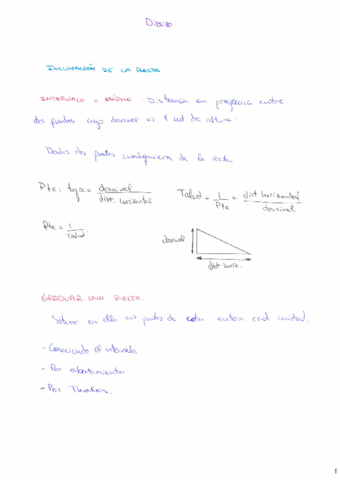 Dibujo
INCLINACIÓN DE LA RECTA
INTERVALO o MÓDULO: Distancia en proyección entre
dos puntos cuyo desnivel es 1 ud de altura.
Dados dos puntos cualquiera de la recta
Pte = tg α = desnivel / dist. horizontal
Talud = 1 / Pte = dist horizontal / desnivel
Pte = 1 / Talud
desnivel
dist. horiz.
GRADUAR UNA RECTA.
Situar en ella sus puntos de cota entera cada unidad.
- Conociendo el intervalo
- Por abatimiento
- Por Thales.
1